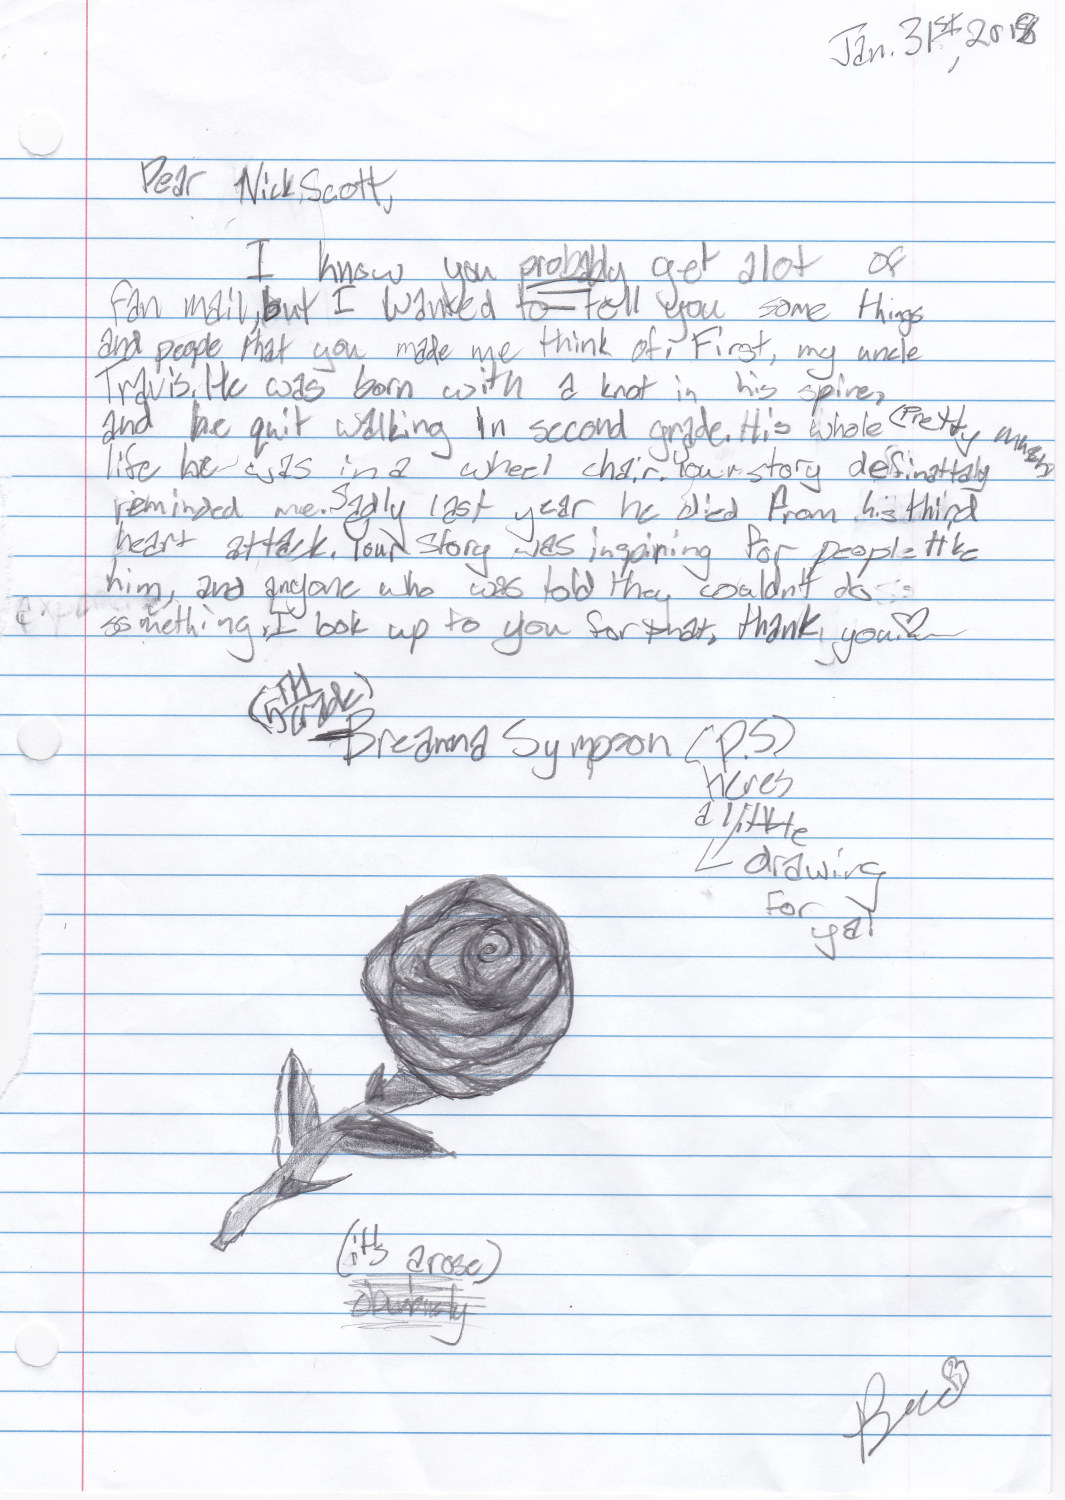 Jan. 31st, 2018
Dear Nick Scott,
I know you probably get alot of
fan mail, but I wanted to tell you some things
and people that you made me think of. First, my uncle
Travis. He was born with a knot in his spine,
and he quit walking in second grade. His whole (Pretty much)
life he was in a wheel chair. Your story definattaly
reminded me. Sadly last year he died from his third
heart attack. Your story was inspiring for people like
him, and anyone who was told they couldn't do
something. I look up to you for that, thank you.♡
(5TH
Grade)
-Breanna Sympson (P.S)
heres
a little
drawing
for
ya!
(it's a rose)
obviously